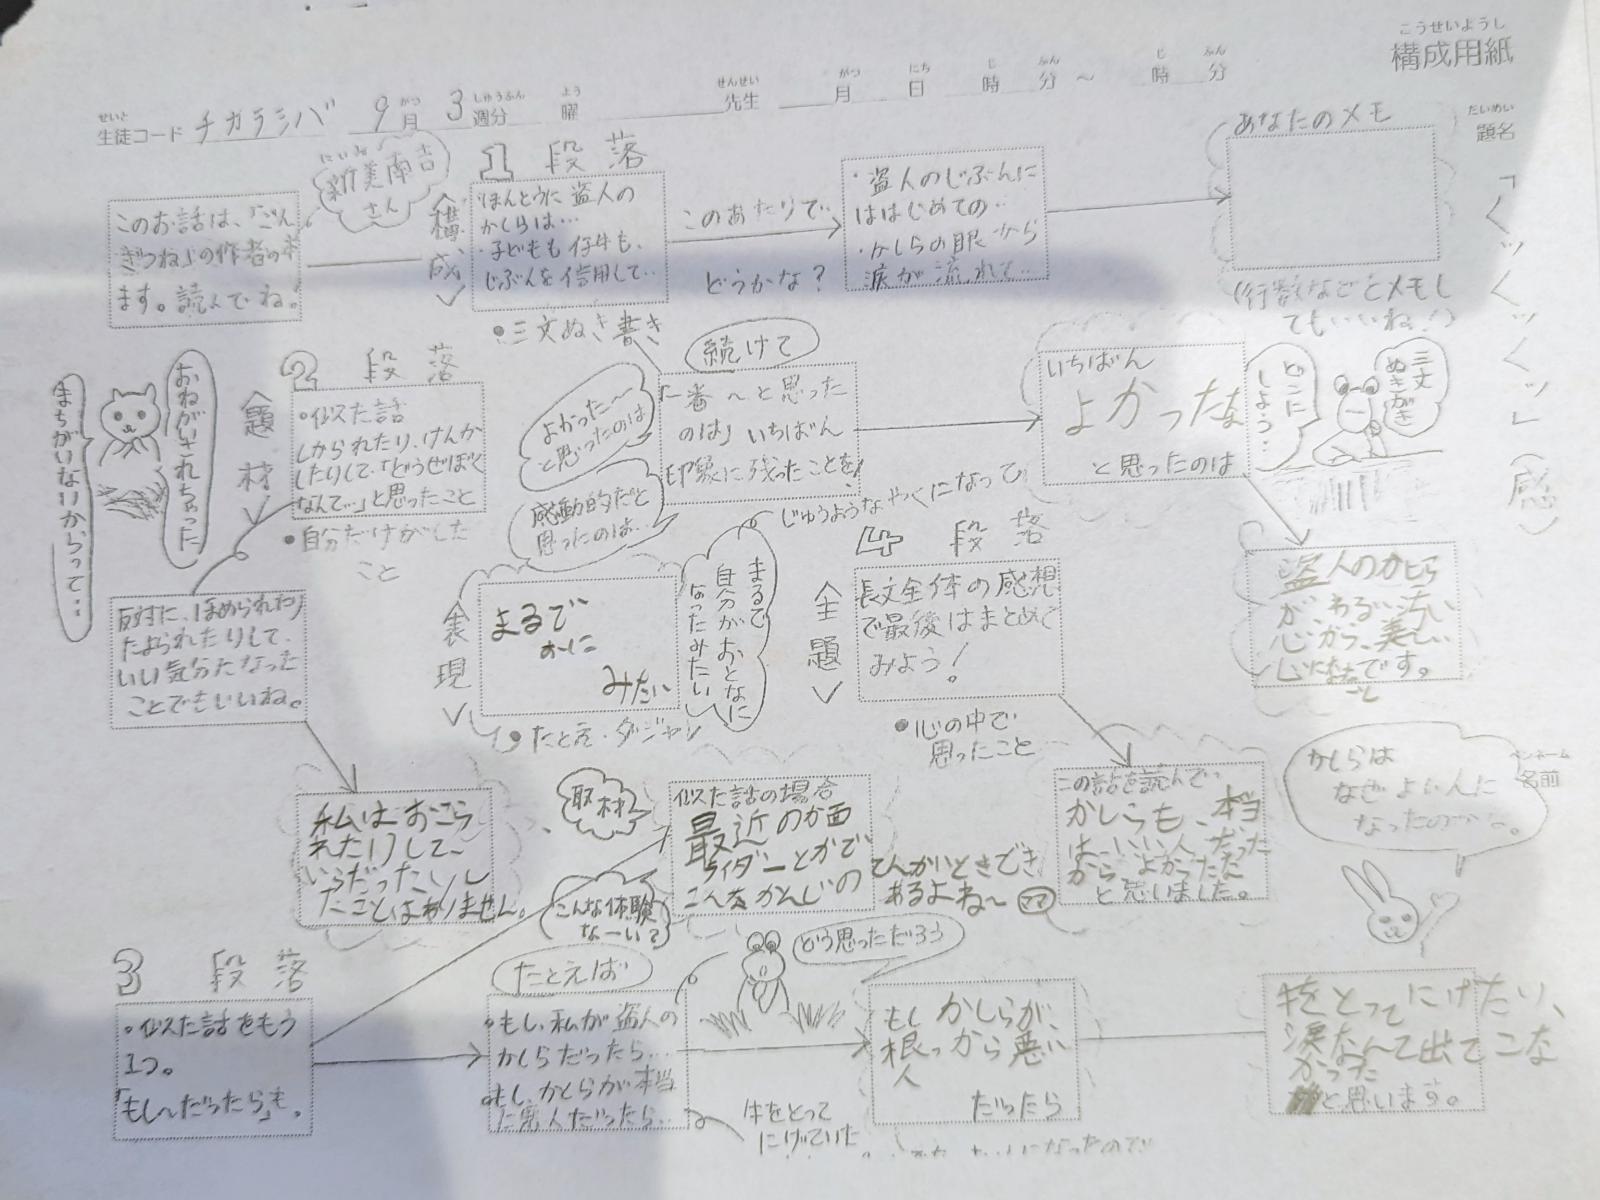 こうせいようし
構成用紙
せいと
生徒コード チカラシバ 9月 3週分 曜 先生 月 日 時 分 〜 時 分
がつ しゅうぶん よう せんせい がつ にち じ ふん じ ふん
だいめい
題名
「くッくッくッ」(感)
ペンネーム
名前
このお話は、「ごん
ぎつね」の作者の本
ます。読んでね。
にいみ
新美南吉
さん
構成
1 段落
ほんとうに盗人の
かしらは…
・子どもも仔牛も、
じぶんを信用して…
●三文ぬき書き
このあたりで…
どうかな?
・盗人のじぶんに
ははじめての…
・かしらの眼から
涙が流れて…
あなたのメモ
(行数などとメモし
てもいいね!)
おねがいされちゃった
まちがいないからって…
題材
2 段落
・似た話
しかられたり、けんか
したりして、「どうせぼく
なんて…」と思ったこと
●自分だけがした
こと
続けて
「一番〜と思った
のは」いちばん
印象に残ったことを!
よかった〜
と思ったのは
感動的だと
思ったのは…
いちばん
よかったな
と思ったのは
どこに
しよう…
三文
ぬきがき
盗人のかしら
が、わるい汚い
心から、美しい
心になったことです。
反対に、ほめられたり
たよられたりして、
いい気分になった
ことでもいいね。
表現
まるで
かに
みたい
●たとえ・ダジャレ
まるで
自分がおとなに
なったみたい
じゅうようなやくになって
4 段落
主題
長文全体の感想
で最後はまとめて
みよう!
●心の中で
思ったこと
私はおこら
れたりして、
いらだったりし
たことはありません。
取材
似た話の場合
最近のか面
ライダーとかで
こんなかんじの
てんかいときどき
あるよね〜
こんな体験
なーい?
この話を読んで…
かしらも、本当
は、いい人だった
から、よかったな
と思いました。
かしらは
なぜよい人に
なったのかな。
3 段落
・似た話をもう
1つ。
「もし〜だったら」も。
たとえば
・もし、私が盗人の
かしらだったら…
・もし、かしらが本当
に悪人だったら…
どう思っただろう
牛をとって
にげていた
もし かしらが、
根っから悪い
人
だったら
牛をとってにげたり、
涙なんて出てこな
かった
と思います。